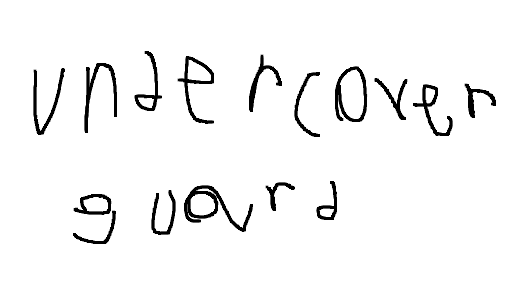 undercover
guard